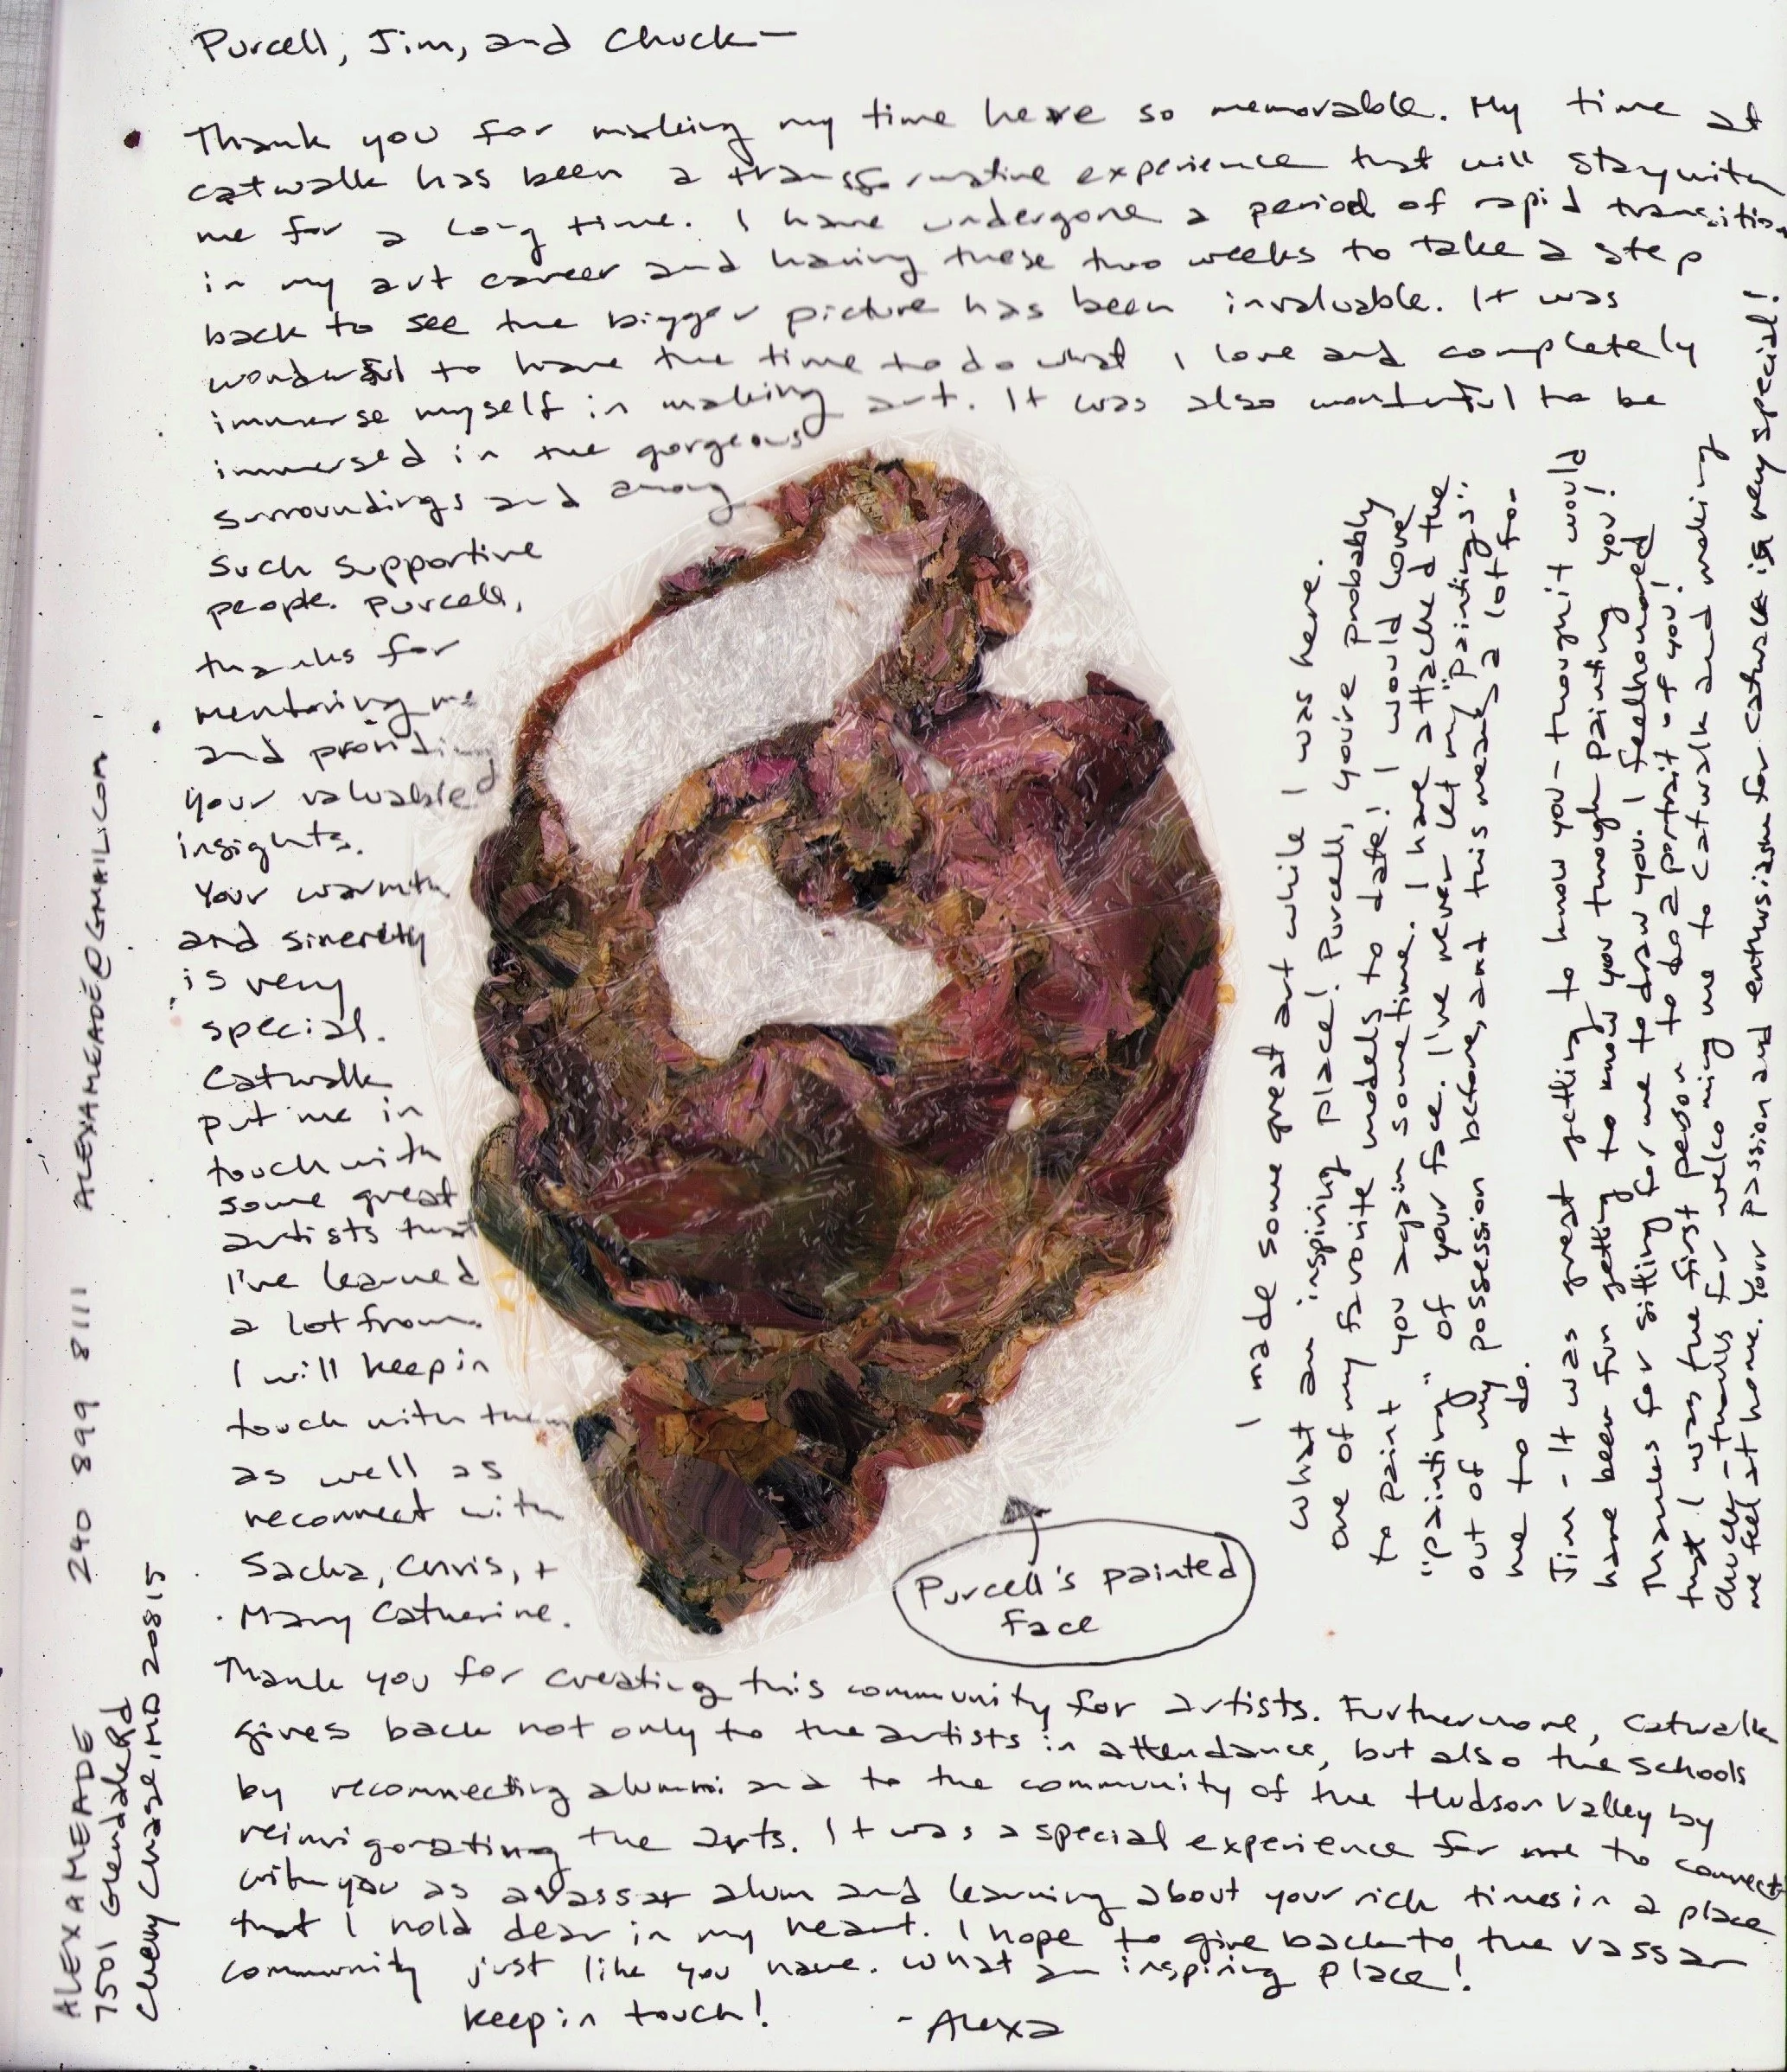 Purcell, Jim, and Chuck—
Thank you for making my time here so memorable. My time at
catwalk has been a transformative experience that will stay with
me for a long time. I have undergone a period of rapid transition
in my art career and having these two weeks to take a step
back to see the bigger picture has been invaluable. It was
wonderful to have the time to do what I love and completely
immerse myself in making art. It was also wonderful to be
immersed in the gorgeous
surroundings and among
such supportive
people. Purcell,
thanks for
mentoring me
and providing
your valuable
insights.
Your warmth
and sincerety
is very
special.
Catwalk
put me in
touch with
some great
artists that
I've learned
a lot from.
I will keep in
touch with them
as well as
reconnect with
Sacha, Chris, +
Mary Catherine.
Thank you for creating this community for artists. Furthermore, Catwalk
gives back not only to the artists in attendance, but also the schools
by reconnecting alumni and to the community of the Hudson Valley by
reinvigorating the arts. It was a special experience for me to connect
with you as a vassar alum and learning about your rich times in a place
that I hold dear in my heart. I hope to give back to the vassar
community just like you have. What an inspiring place!
Keep in touch!
- Alexa
Purcell's painted
face
I made some great art while I was here.
What an inspiring place! Purcell, you're probably
one of my favorite models to date! I would love
to paint you again some time. I have attached the
"painting" of your face. I've never let my "paintings"
out of my possession before, and this means a lot for
me to do.
Jim - It was great getting to know you - thought it would
have been fun getting to know you through painting you!
Thanks for sitting for me to draw you. I feel honored
that I was the first person to do a portrait of you!
Chuck - thanks for welcoming me to Catwalk and making
me feel at home. Your passion and enthusiasm for Catwalk is very special!
ALEXA MEADE 240 899 8111 ALEXAMEADE@GMAIL.COM
7501 Glendale Rd
Chevy Chase, MD 20815